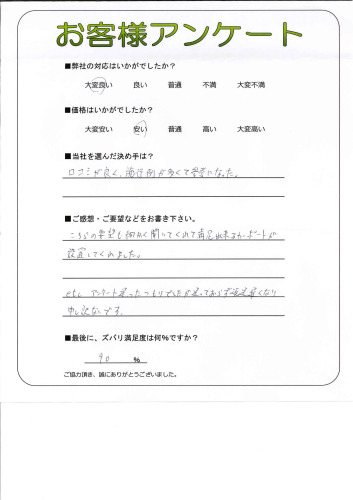 お客様アンケート
■弊社の対応はいかがでしたか？
大変良い 良い 普通 不満 大変不満
■価格はいかがでしたか？
大変安い 安い 普通 高い 大変高い
■当社を選んだ決め手は？
口コミが良く、施行例が多くて参考になった。
■ご感想・ご要望などをお書き下さい。
こちらの要望も細かく聞いてくれて満足出来るカーポートが
設置してくれました。
アンケート送ったつもりでしたが送っておらず遅くなり
申し訳ないです。
■最後に、ズバリ満足度は何%ですか？
90 %
ご協力頂き、誠にありがとうございました。